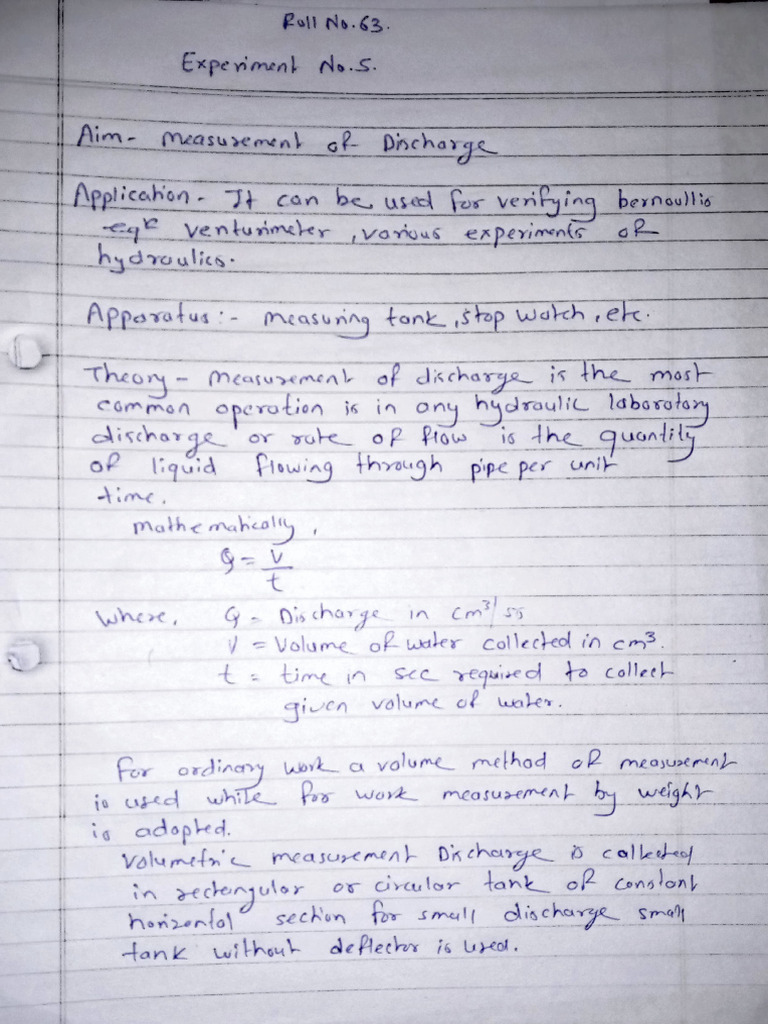 Roll No. 63.
Experiment No. 5.
Aim - Measurement of Discharge
Application - It can be used for verifying bernoullis
eqn venturimeter, various experiments of
hydraulics.
Apparatus :- measuring tank, stop watch, etc.
Theory - measurement of discharge is the most
common operation is in any hydraulic laboratory
discharge or rate of flow is the quantity
of liquid flowing through pipe per unit
time.
mathematically,
Q = V/t
Where, Q = Discharge in cm³/
V = Volume of water collected in cm³.
t = time in sec required to collect
given volume of water.
for ordinary work a volume method of measurement
is used while for work measurement by weight
is adopted.
Volumetric measurement Discharge is collected
in rectangular or circular tank of constant
horizontal section for small discharge small
tank without deflector is used.